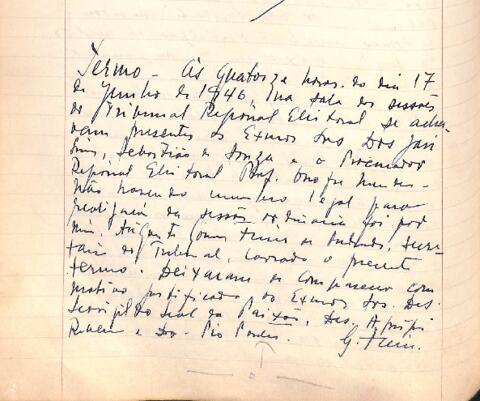 Termo - Às quatorze horas do dia 17
de Junho de 1946, na sala das sessões
do Tribunal Regional Eleitoral se acha-
vam presentes os Exmos Srs Drs
Sebastião de Souza e o Procurador
Regional Eleitoral Prof. Onofre Mendes -
Não havendo numero legal para
realização da sessão ordinaria foi por
mim, secre-
tario do Tribunal, lavrado o presente
termo. Deixaram de comparecer com
motivo justificado os Exmos Srs. Des.
Leal da Paixão, Des.
e Dr. Pio
G.